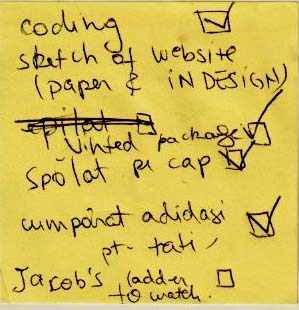 coding
sketch of website
(paper & iN DESIGN)
epilat
Vinted package
spălat pe cap
cumpărat adidași
pt. tati
Jacob's ladder
to watch.